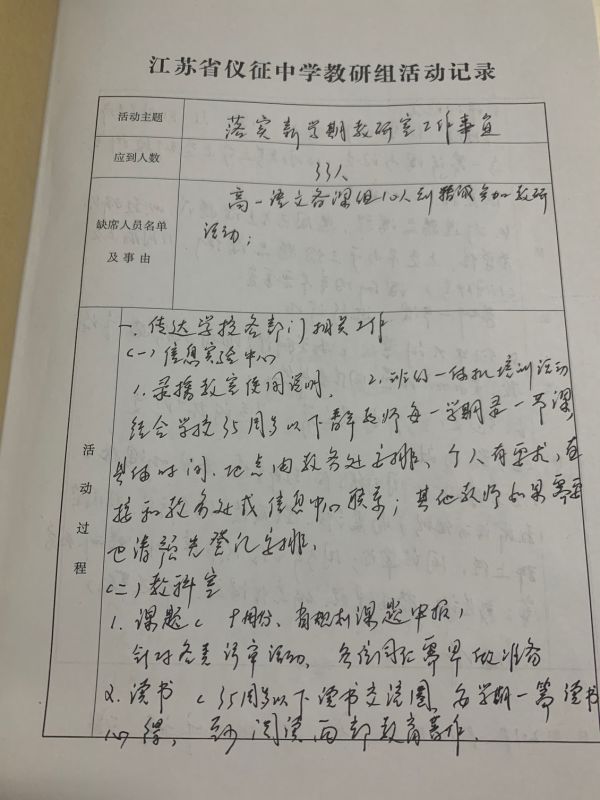 江苏省仪征中学教研组活动记录
活动主题
落实新学期教研室工作事宜
应到人数
33人
缺席人员名单
及事由
高一语文备课组10人到 参加教研
活动;
活动过程
一、传达学校各部门相关工作
(一)信息实验中心
1.录播教室使用说明、 2. 一体机培训活动
结合学校35周岁以下青年教师每一学期录一节课,
具体时间、地点由教务处安排、个人有要求,直
接和教务处或信息中心联系;其他教师如果需要
也请预先登记安排.
(二)教科室
1. 课题 十月份、有规划课题申报,
针对各类评审活动、各位同仁需早做准备
2. 读书 35周岁以下读书交流圈,每学期一篇读书
心得, 至少阅读两部教育著作.